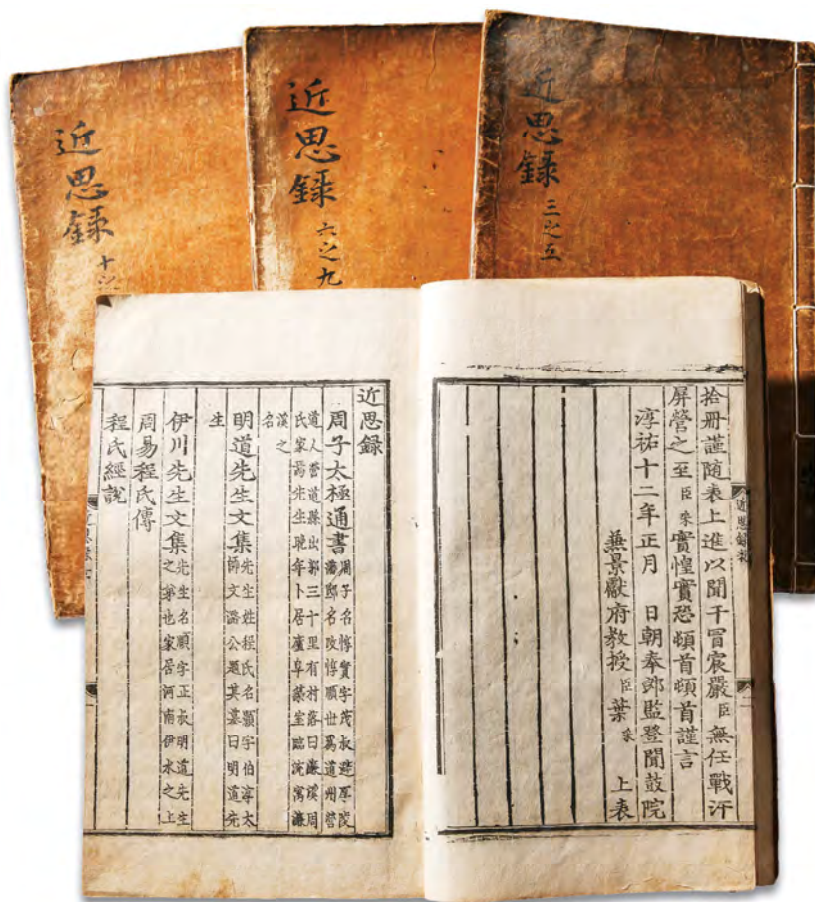 近思錄
十之
近思錄
六之九
近思錄
三之五
拾册謹随表上進以聞干冒宸嚴臣無任戰汗
屏營之至臣采實惶實恐頓首頓首謹言
淳祐十二年正月 日朝奉郎監登聞鼓院
兼景獻府教授臣葉采 上表
近思錄
周子太極通書周子名惇實字茂叔避厚陵
藩邸名改惇頤世爲道州營
道人營道縣出郭三十里有村落曰濂溪周
氏家焉先生晚年卜居廬阜築室臨流寓濂
溪之
名
明道先生文集先生姓程氏名顥字伯淳太
師文潞公題其墓曰明道先
生
伊川先生文集先生名頤字正叔明道先生
之弟也家居河南伊水之上
周易程氏傳
程氏經說